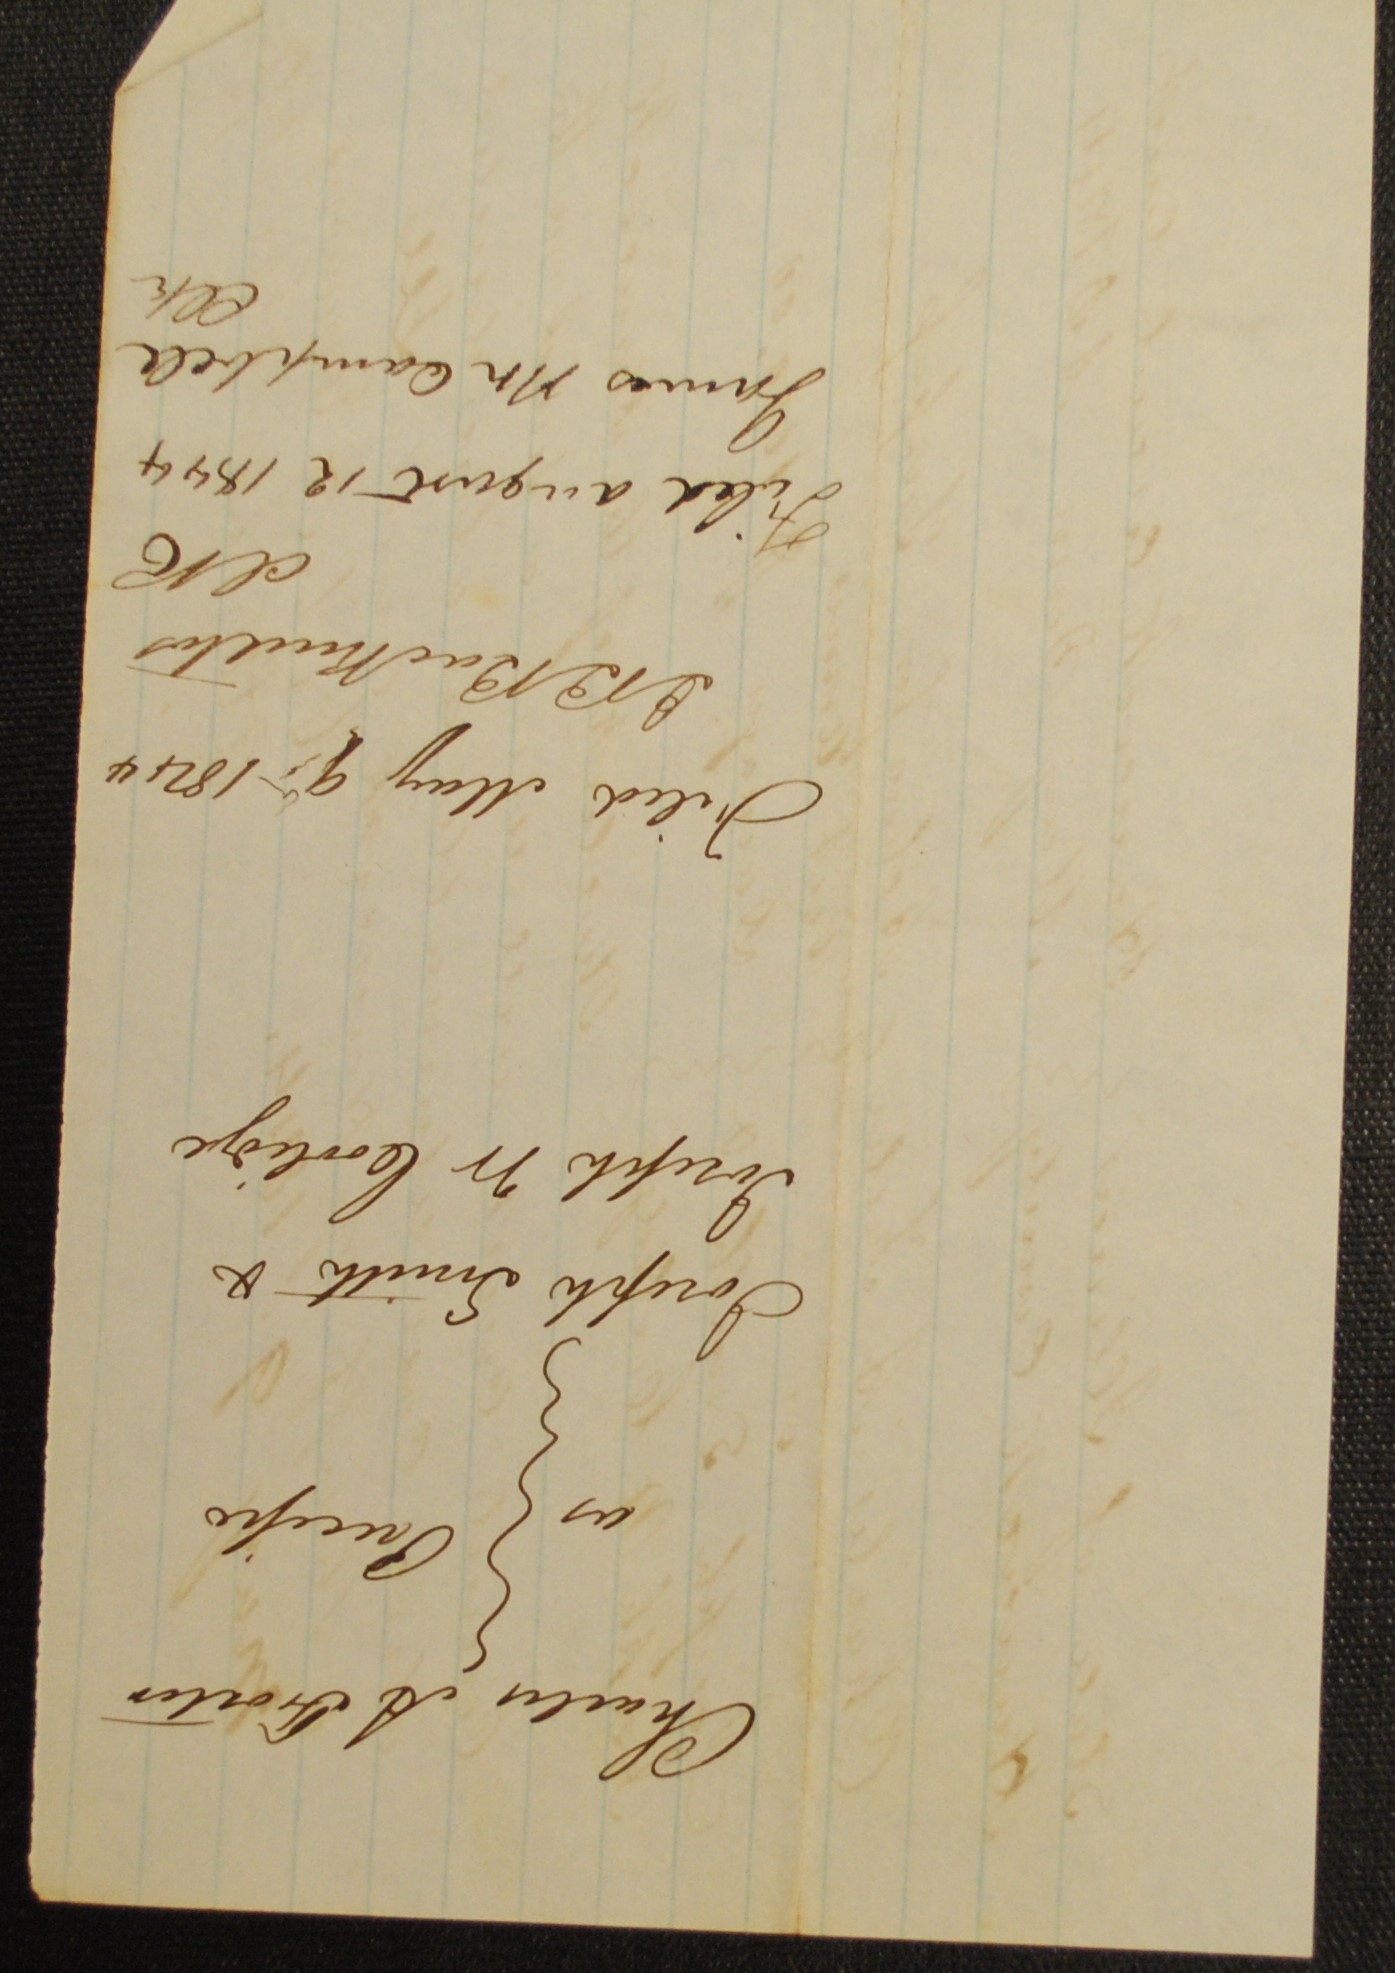 Charles A Foster
vs } Precipe
Joseph Smith &
Joseph W Coolidge
Filed May 9, 1844
J B Backenstos
clk
Filed august 12 1844
James M Campbell
Clk